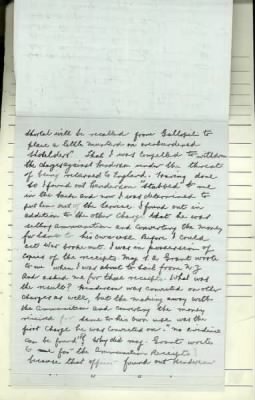 should will be recalled from Gallipoli to
place a little mustard on overburdened
shoulders". That I was compelled to withdraw
the charges against Henderson under the threat
of being returned to England. Having done
so I found out Henderson "stabbed" me
in the back and now I was determined to
put him out of the Service. I found out in
addition to the other charge that he was
selling ammunition and converting the money
for same to his own use. Before I could
act War broke out. I was in possession of
copies of the receipts. May I. E. Grant wrote
to me when I was about to sail from N.Z.
and asked me for these receipts. What was
the result? Henderson was convicted on other
charges as well, but the making away with
the ammunition and converting the money
received for same to his own use was the
first charge he was convicted on. "no evidence
can be found" Why did may. Grant write
to me for the ammunition Receipts
because that officer found out Henderson